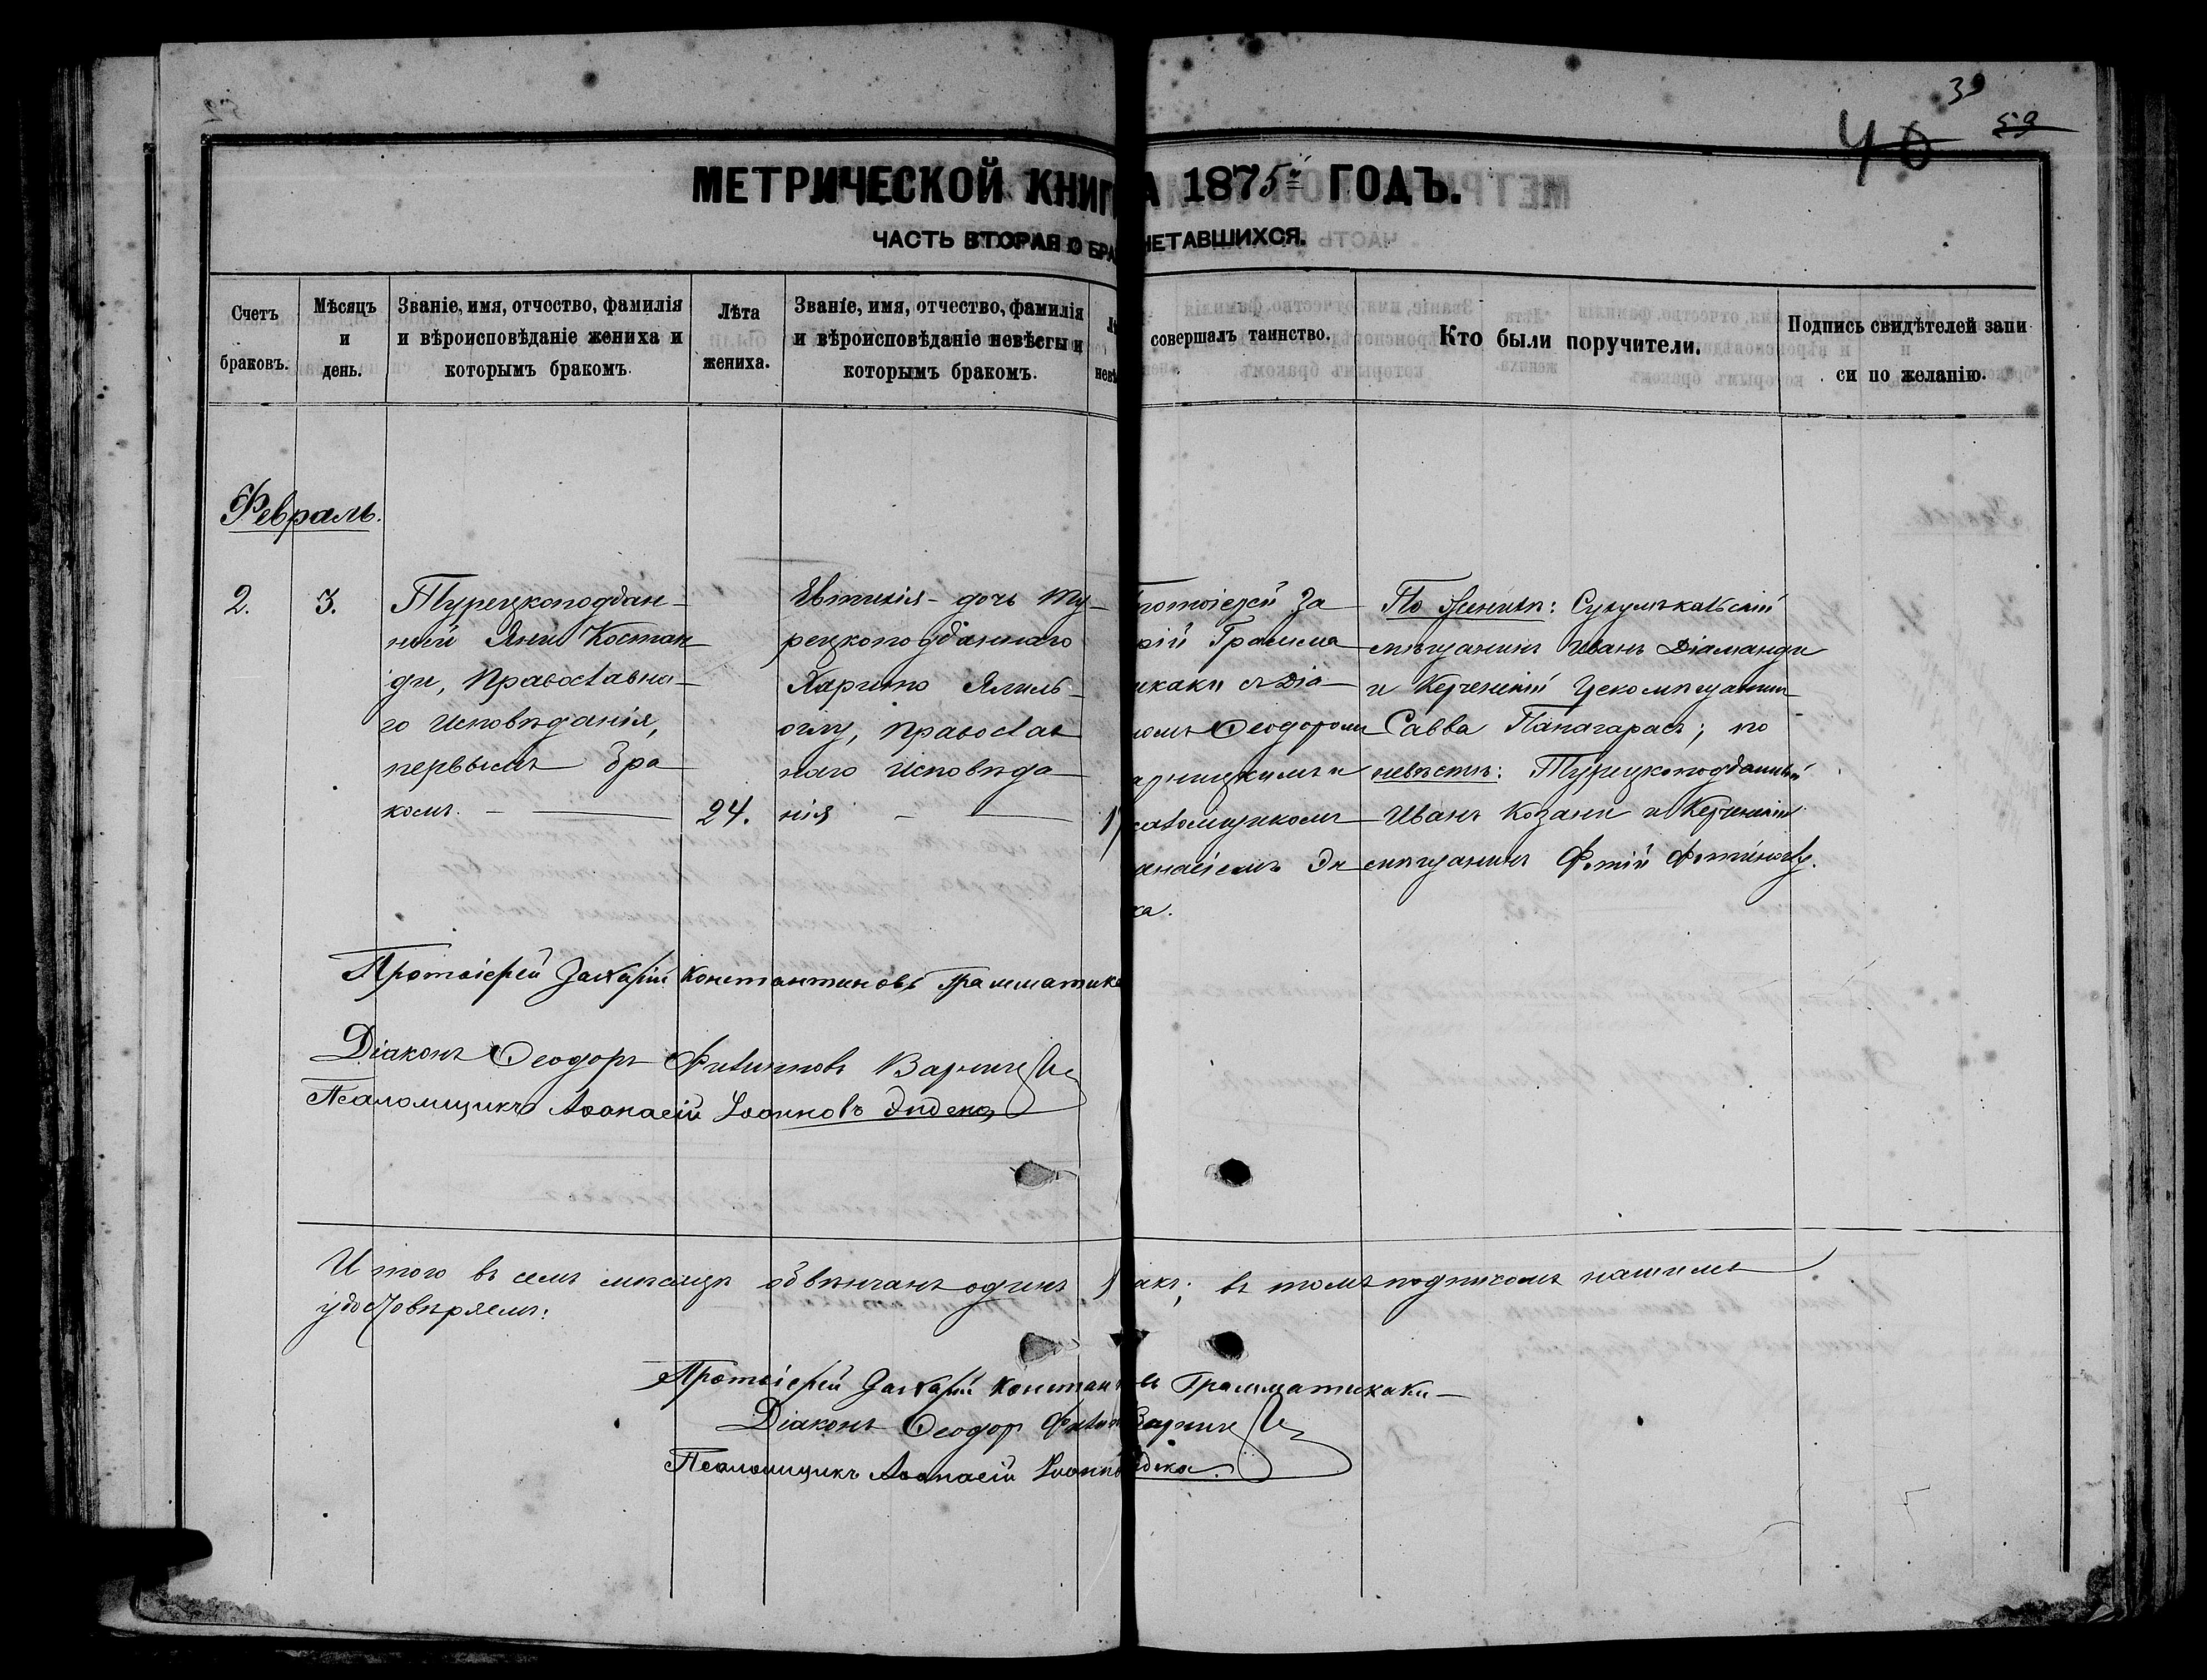 39
40 59
МЕТРИЧЕСКОЙ КНИГ А 1875й ГОДЪ.
ЧАСТЬ ВТОРАЯ О БРА ЧЕТАВШИХСЯ.
Счетъ браковъ.
Мѣсяцъ и день.
Званіе, имя, отчество, фамилія
и вѣроисповѣданіе жениха и
которымъ бракомъ.
Лѣта
жениха.
Званіе, имя, отчество, фамилія
и вѣроисповѣданіе невѣсты и
которымъ бракомъ.
совершалъ таинство.
Кто были поручители.
Подпись свидѣтелей запи
си по желанію.
Февраль.
2.
3.
Турецкоподдан-
ный Яни Костан
ди, Православна-
го исповѣданія,
первымъ бра
комъ.
24.
Евтихія - дочь Ту-
рецкоподданнаго
Харито
оглу, Православ
наго исповѣда
нія
ротоіерей За
рій Грамма
икаки съ Діа
номъ Ѳеодоромъ
арницкимъ и
саломщикомъ
анасіемъ Эн
ка.
По женихѣ: Сухумъкальскій
мѣщанинъ Иванъ Діаманди
и Керченскій Цехомѣщанинъ
Савва Папагарасъ; по
невѣстѣ: Турецкоподданный
Иванъ Козани и Керченскій
мѣщанинъ Фотій
Протоіерей Захарій Константиновъ Грамматика
Діаконъ Ѳеодоръ Филипповъ Варниц
Псаломщикъ Аѳанасій Іоанновъ Эндека
Итого въ семъ мѣсяцѣ обвѣнчанъ одинъ акъ; въ томъ подписомъ нашимъ
удостовѣряемъ:
Протоіерей Захарій Констан въ Грамматикаки
Діаконъ Ѳеодор Филип Варниц
Псаломщикъ Аѳанасій Іоанно дека.